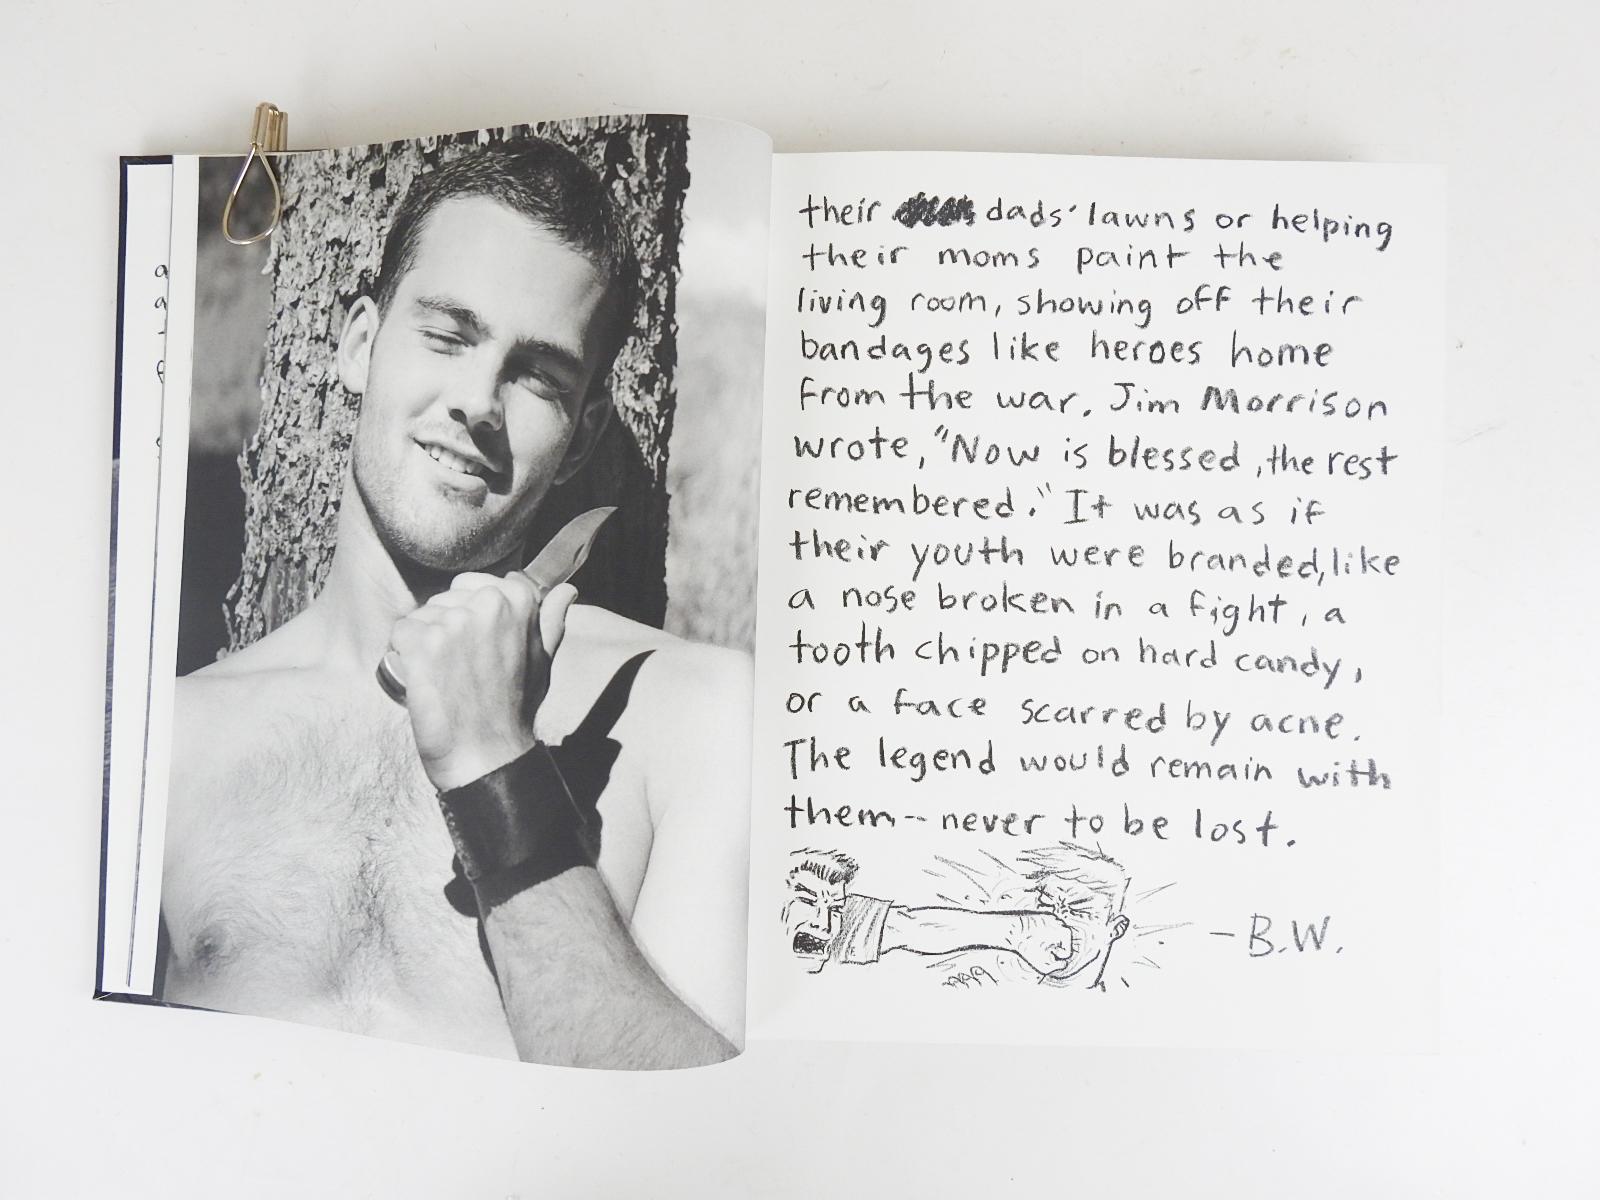 their dads' lawns or helping
their moms paint the
living room, showing off their
bandages like heroes home
from the war. Jim Morrison
wrote, "Now is blessed, the rest
remembered." It was as if
their youth were branded, like
a nose broken in a fight, a
tooth chipped on hard candy,
or a face scarred by acne.
The legend would remain with
them -- never to be lost.
- B.W.